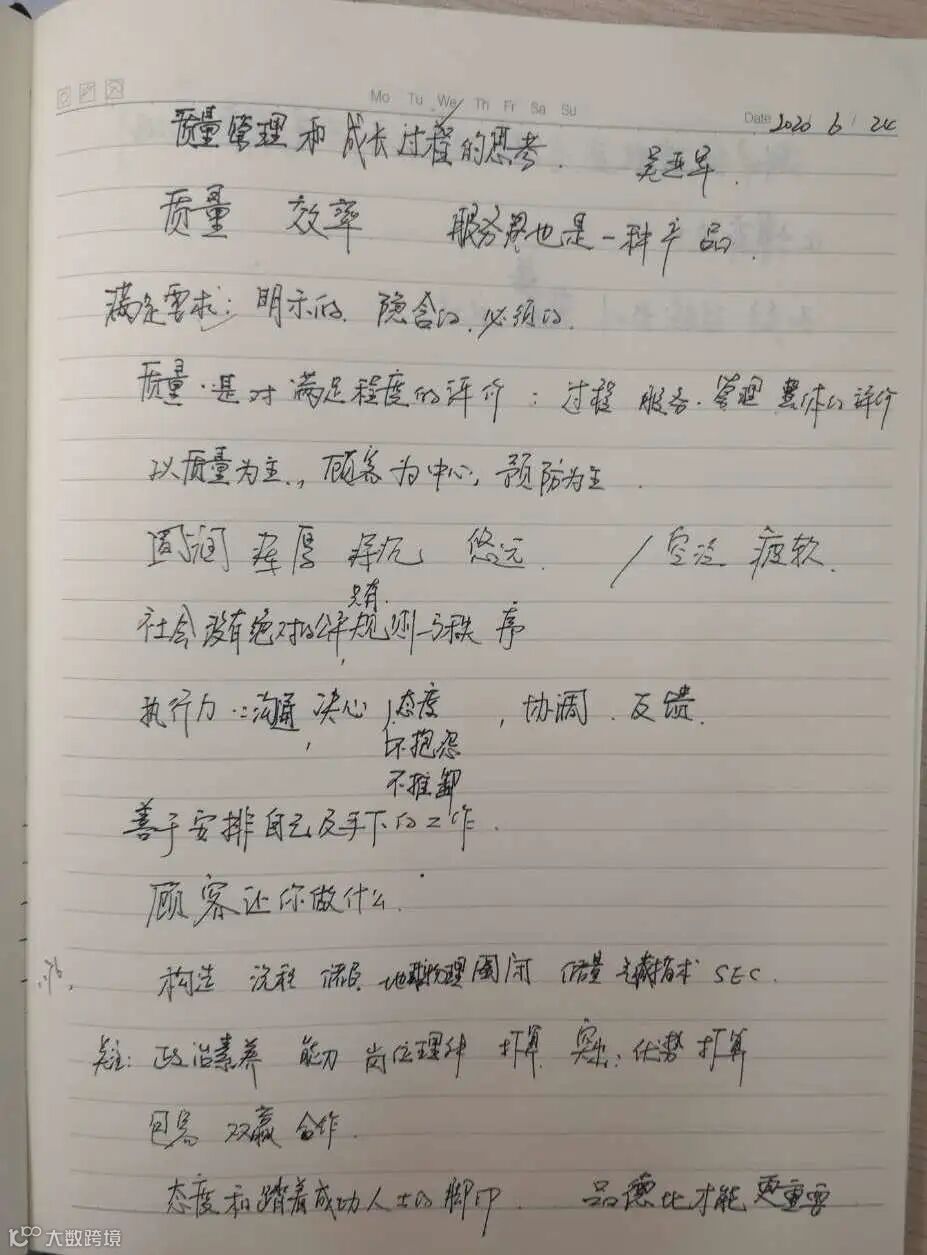 Mo Tu We Th Fr Sa Su
Date 2020 6 / 24
质量管理和成长过程的思考. 吴亚军.
质量 效率 服务也是一种产品.
满足要求: 明示的、隐含的、必须的.
质量.是对满足程度的评价: 过程 服务.管理 整体的评价
以质量为主., 顾客为中心, 预防为主
圆润 浑厚 悠远. / 空泛 疲软.
只有
社会没有绝对的公平,规则与秩序
执行力: 沟通, 决心, 态度, 协调. 反馈.
不抱怨
不推卸
善于安排自己及手下的工作.
顾客还你做什么.
构造 流程 储层 地球物理 圈闭 储量 SEC.
关注: 政治素养 能力 岗位理解 打算 突出: 优势 打算
双赢 合作.
态度和踏着成功人士的脚印. 品德比才能更重要
大数跨境